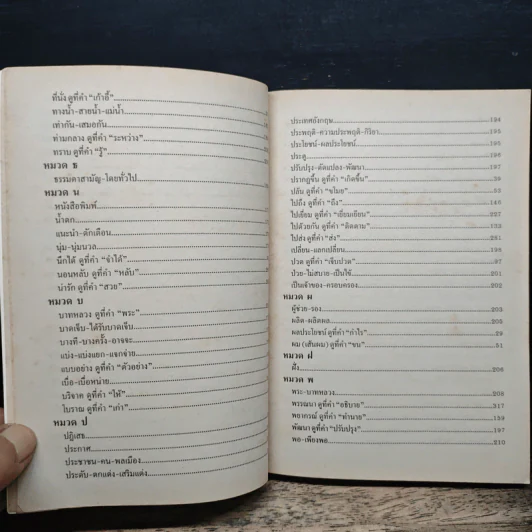 ที่นั่ง ดูที่คำ “เก้าอี้”
ทางน้ำ-สายน้ำ-แม่น้ำ
เท่ากัน-เสมอกัน
ท่ามกลาง ดูที่คำ “ระหว่าง”
ทราบ ดูที่คำ “รู้”
หมวด ธ
ธรรมดาสามัญ-โดยทั่วไป
หมวด น
หนังสือพิมพ์
น้ำตก
แนะนำ-ตักเตือน
นุ่ม-นุ่มนวล
นึกได้ ดูที่คำ “จำได้”
นอนหลับ ดูที่คำ “หลับ”
น่ารัก ดูที่คำ “สวย”
หมวด บ
บาทหลวง ดูที่คำ “พระ”
บาดเจ็บ-ได้รับบาดเจ็บ
บางที-บางครั้ง-อาจจะ
แบ่ง-แบ่งแยก-แจกจ่าย
แบบอย่าง ดูที่คำ “ตัวอย่าง”
เบื่อ-เบื่อหน่าย
บริจาค ดูที่คำ “ให้”
โบราณ ดูที่คำ “เก่า”
หมวด ป
ปฏิเสธ
ประกาศ
ประชาชน-คน-พลเมือง
ประดับ-ตกแต่ง-เสริมแต่ง
ประเทศอังกฤษ 194
ประพฤติ-ความประพฤติ-กิริยา 195
ประโยชน์-ผลประโยชน์ 195
ประตู 197
ปรับปรุง-ดัดแปลง-พัฒนา 197
ปรากฏขึ้น ดูที่คำ “เกิดขึ้น” 39
ปล้น ดูที่คำ “ขโมย” 58
ไปถึง ดูที่คำ “ถึง” 146
ไปเยี่ยม ดูที่คำ “เยี่ยมเยียน” 227
ไปด้วยกัน ดูที่คำ “ติดตาม” 139
ไปส่ง ดูที่คำ “ส่ง” 281
เปลี่ยน-แลกเปลี่ยน 199
ปวด ดูที่คำ “เจ็บปวด” 97
ป่วย-ไม่สบาย-เป็นไข้ 201
เป็นเจ้าของ-ครอบครอง 203
หมวด ผ
ผู้ช่วย-รอง 203
ผลิต-ผลิตผล 205
ผลประโยชน์ ดูที่คำ “กำไร” 29
ผม (เส้นผม) ดูที่คำ “ขน” 51
หมวด ฝ
ฝั่ง 206
หมวด พ
พระ-บาทหลวง 208
พรรณนา ดูที่คำ “อธิบาย” 317
พยากรณ์ ดูที่คำ “ทำนาย” 159
พัฒนา ดูที่คำ “ปรับปรุง” 197
พอ-เพียงพอ 210